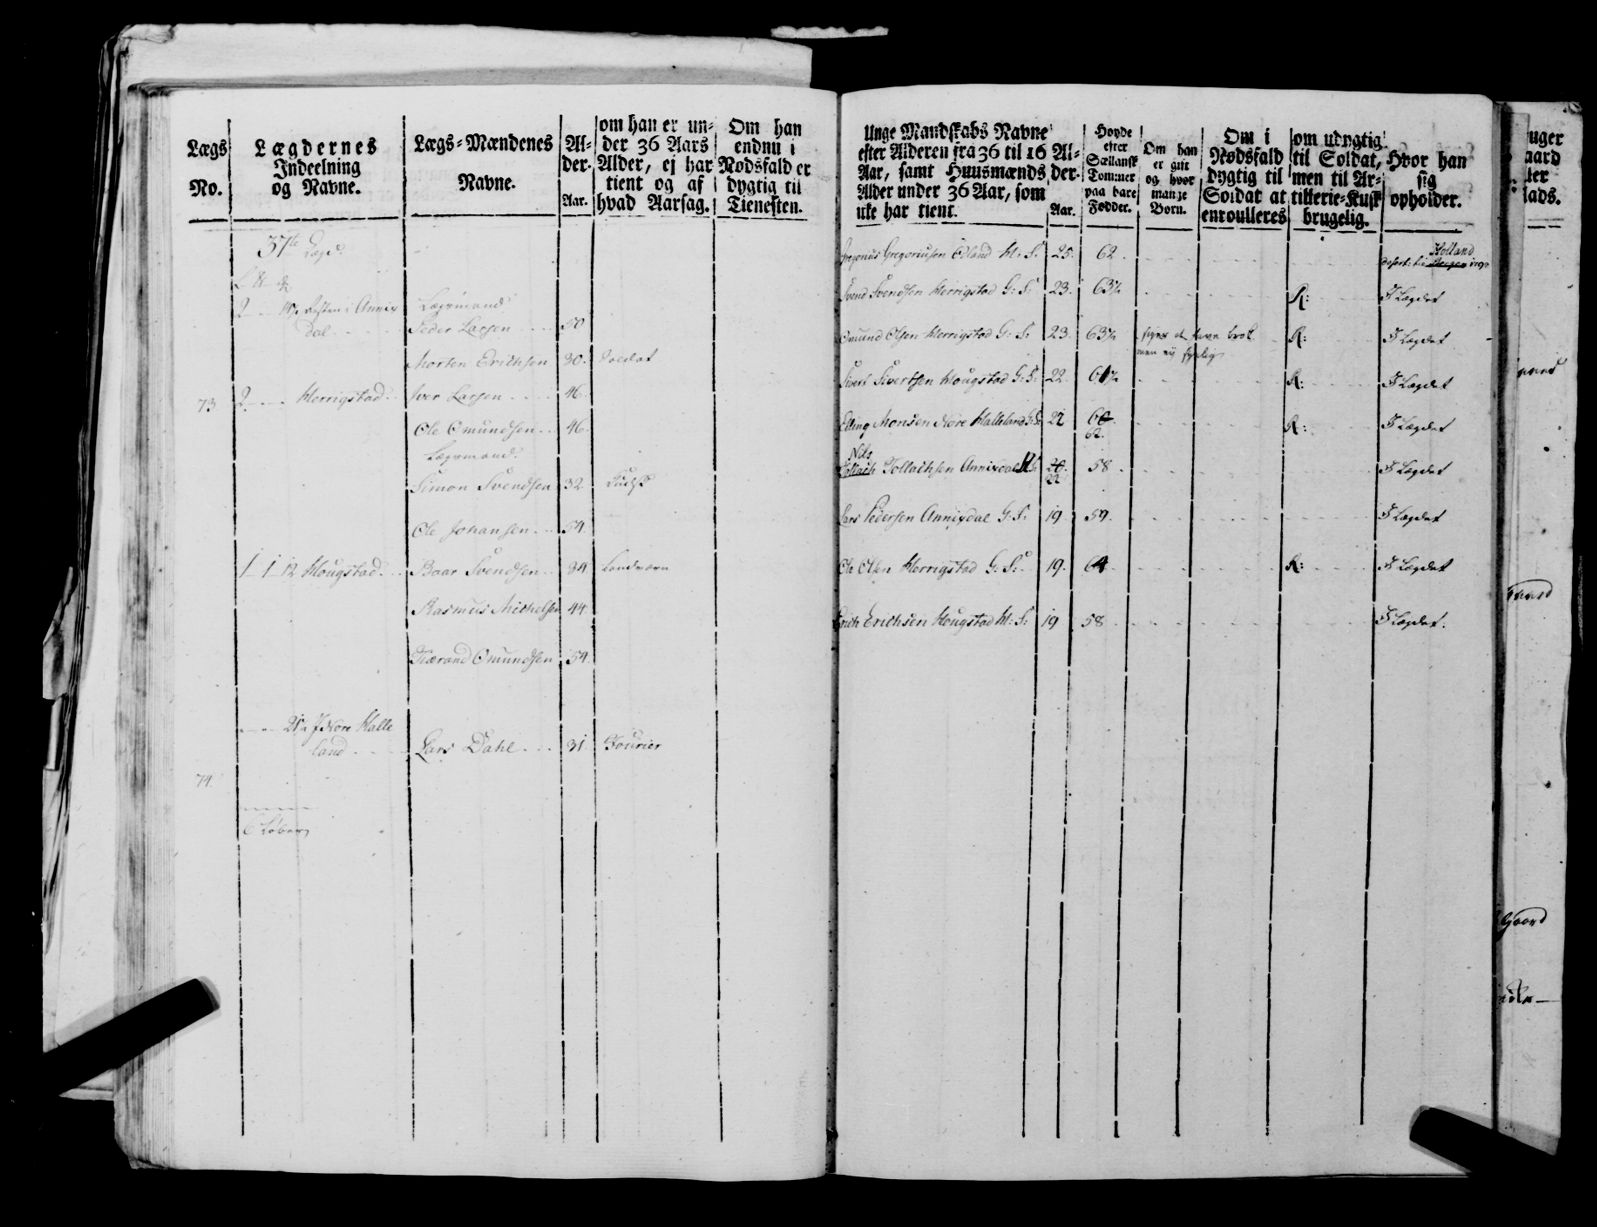 Lægs
No.
Lægdernes
Indeelning
og Navne.
Lægs-Mændenes
Navne.
Al-
der.
Aar.
om han er un-
der 36 Aars
Alder, ej har
tient og af
hvad Aarsag.
Om han
endnu i
Nødsfald er
dygtig til
Tienesten.
37te Lægd.
2
resten i Annix
dal
Lægsmand
Peder Larsen 50
Morten Erichsen 30. Soldat
73 2 Herrigstad Iver Larsen 46
Ole Omundsen 46
Lægsmand.
Simon Svendsen 32
Ole Johansen 54
1 1 12 Hougstad. Baar Svendsen 34 Landværn
Rasmus Michelsen 44
Omundsen 54
Nore Halle
land Lars Dahl 31 Fourier
74.
Unge Mandskabs Navne
efter Alderen fra 36 til 16
Aar, samt Huusmænds
Alder under 36 Aar, som
ikke har tient.
Al-
der.
Aar.
Høyde
efter
Siællansk
Tommer
paa bare
Fødder.
Om han
er gift
og hvor
mange
Børn.
Om i
Nødsfald
dygtig til
Soldat at
enroulleres
om udygtig
til Soldat,
men til Ar-
tillerie-Kusk
brugelig.
Hvor han
sig
opholder.
Gregoriusen H: S: 25. 62
Holland
Svend Svendsen Herrigstad G: S: 23. 63½ R: I Lægdet
Omund Olsen Herrigstad G: S: 23. 63½ siger at have brok R: I Lægdet
men ej synlig
Sivert Sivertsen Hougstad G: S: 22 61½ R: I Lægdet
Elling Monsen Nore Halleland G: S: 22 60 R: I Lægdet
62.
Nils
Tollach Tollachsen Annixdal H: S: 20. 58 I Lægdet
22
Lars Pedersen Annixdal G: S: 19 59. I Lægdet
Ole Olsen Herrigstad G: S: 19. 64 R: I Lægdet
Erich Erichsen Hougstad H: S: 19 58 I Lægdet.
uger
aard
ter
ads.
Gaard